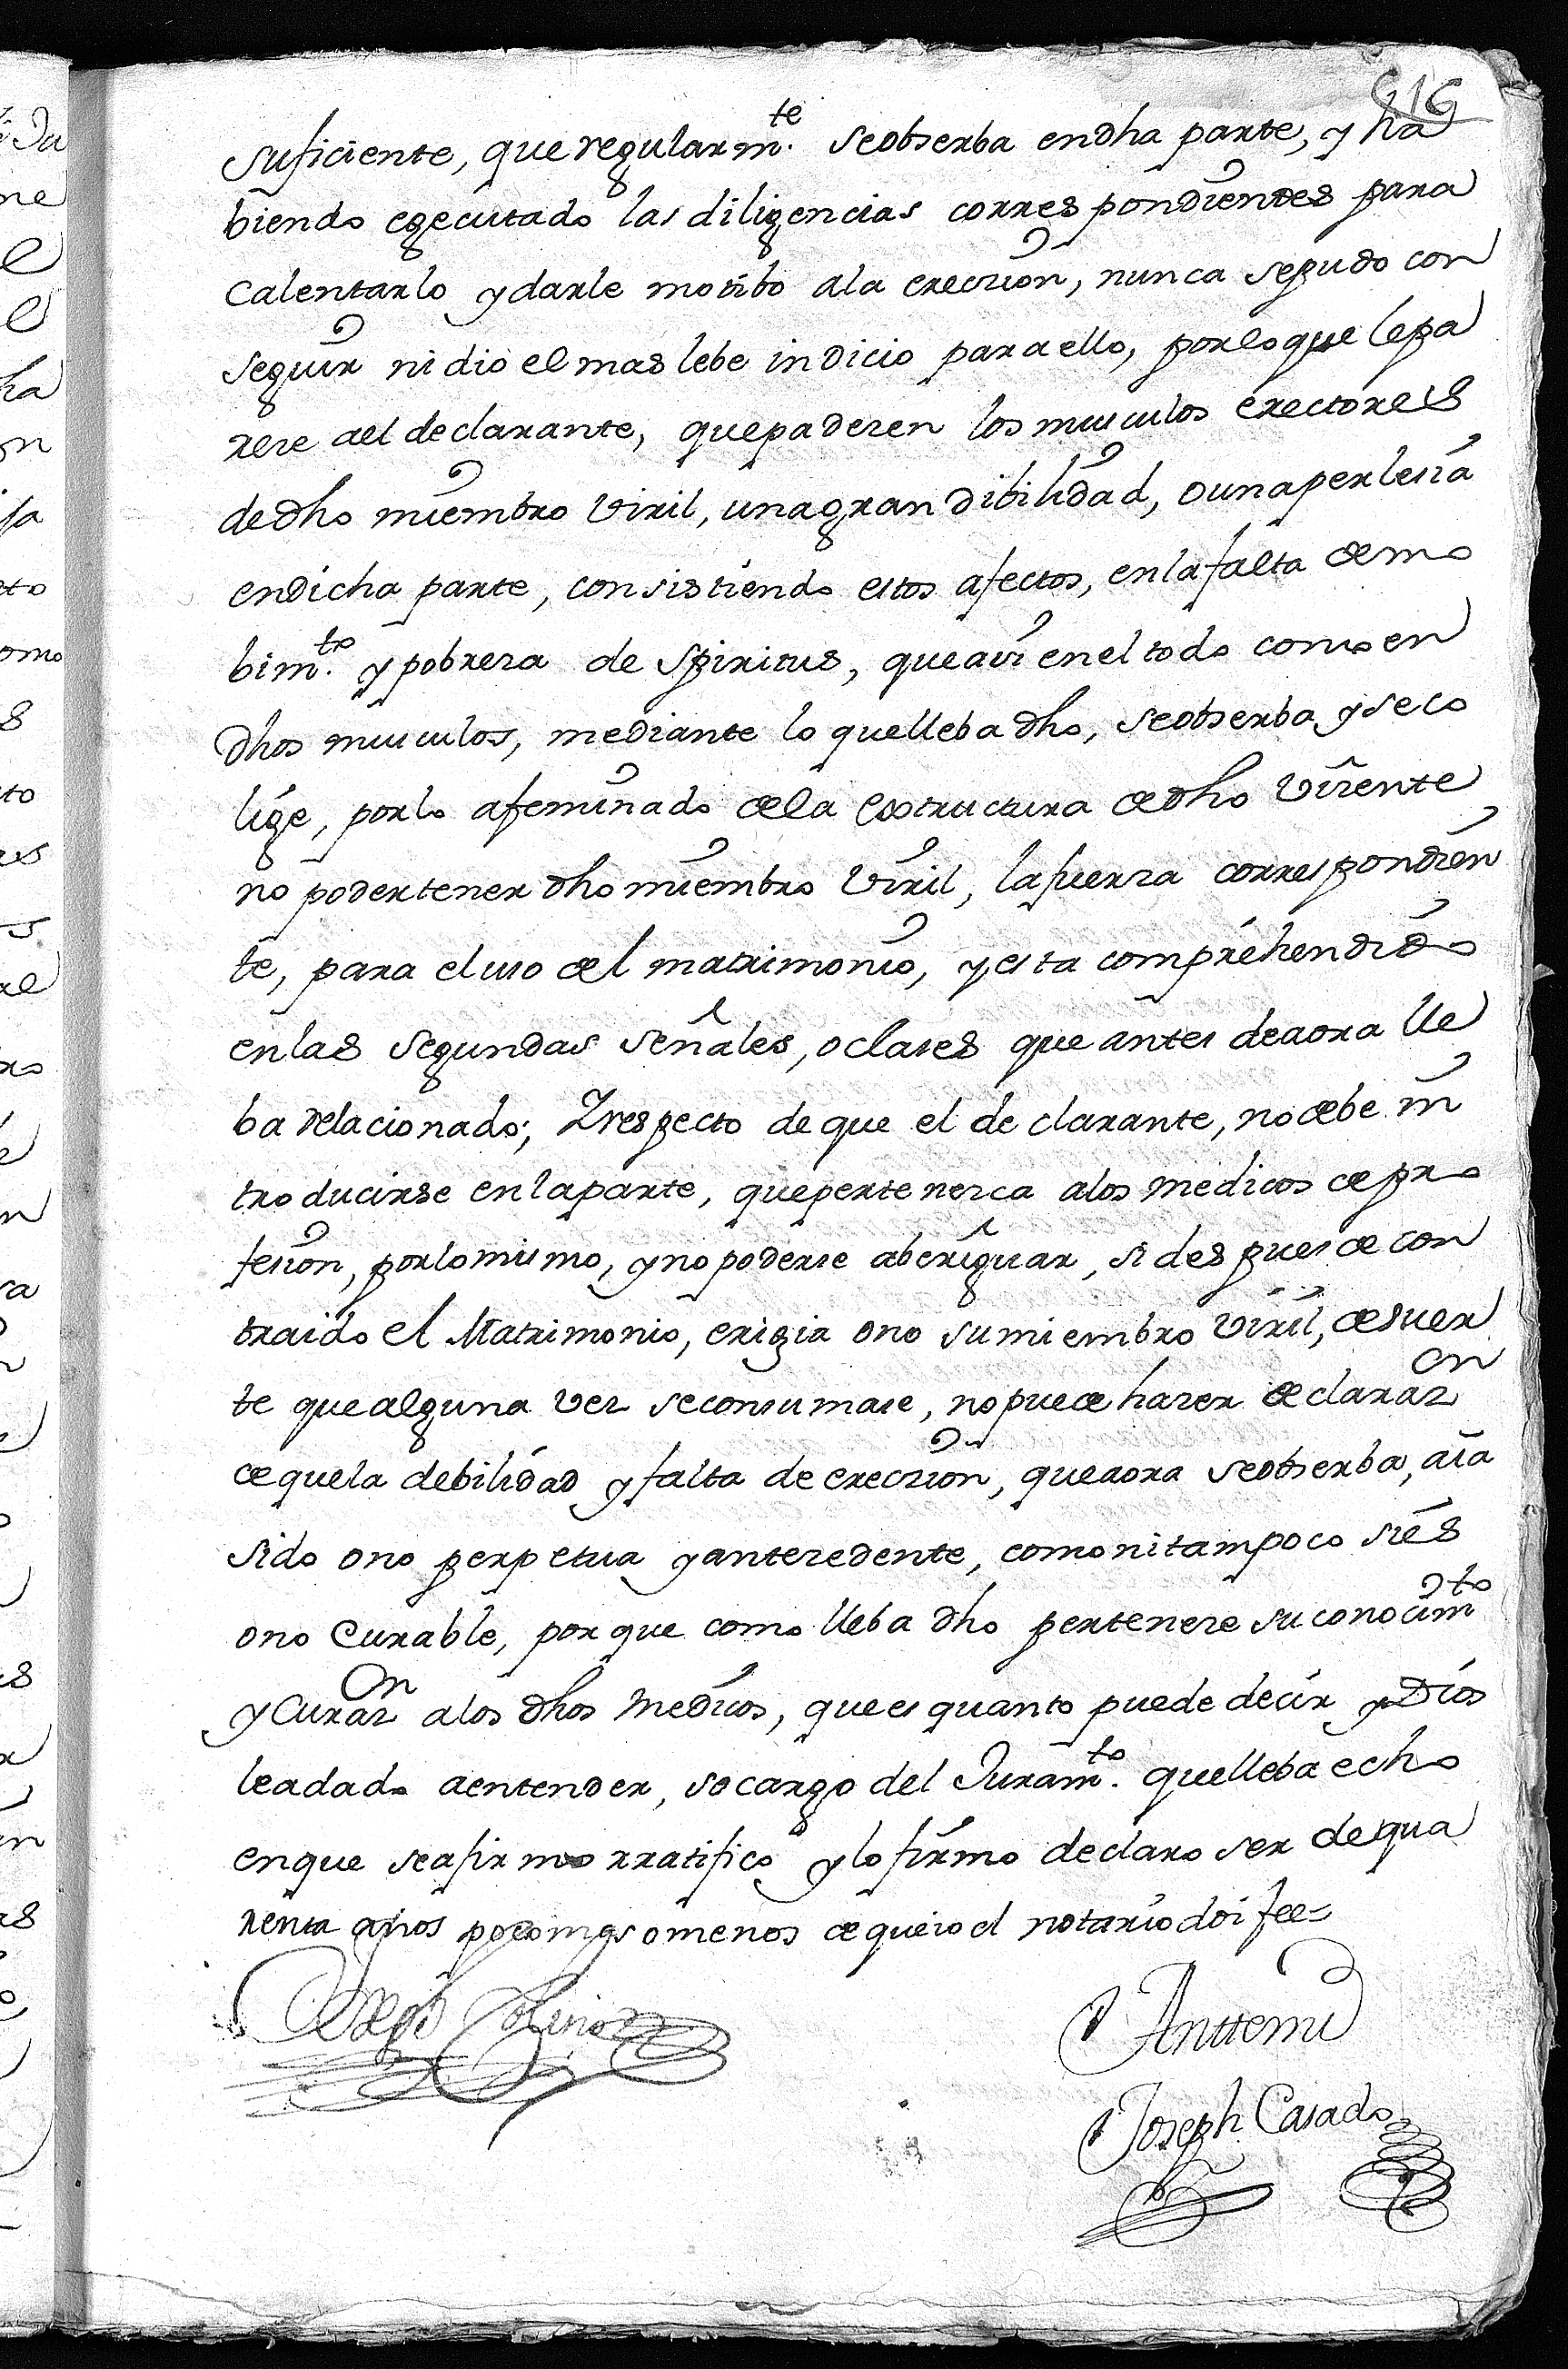 616
suficiente, que regularm.te seobserba endha parte, y ha
biendo egecutado las diligencias correspondientes para
Calentarlo y darle motibo ala ereczion, nunca sepudo con
seguir ni dio el mas lebe indicio para ello, porloque lepa
reze ael declarante, quepadezen los musculos erectores
dedho miembro viril, unagran dibilidad, ounaperlesia
endicha parte, consistiendo estos afectos, enlafalta demo
bim.to y pobreza de Spiritus, queasi enel todo como en
dhos musculos, mediante lo quelleba dho, seobserba, y seco
lige, porlo afeminado dela Esstructura dedho Viviente
no podertener dho miembro Viril, lafuerza correspondien
te, para eluso del matrimonio, y esta comprehendido
enlas segundas señales, o clases que antes deaora lle
ba relacionado; Irespecto de que el declarante, no debe in
troducirse enlaparte, quepertenezca alos Medicos depro
fesion, porlomismo, y no poderse aberiguar, si despues de con
traido el Matrimonio, erigia ono sumiembro Viril, desuer
te que alguna vez seconsumase, nopuede hazer declaraz.on
de quela debilidad y falta de ereczion, queaora seobserba, aia
sido ono perpetua y antezedente, como ni tampoco si es
ono Curable, por que como lleba dho perteneze su conocim.to
y Curaz.on alos dhos Medicos, que es quanto puede decir y Dios
leadado aentender, so cargo del Juram.to quelleba echo
enque seafirmo rratifico y lo firmo declaro ser de qua
renta años pocomas omenos de queio el notario doi fee=
Anttemi
Joseph Casado